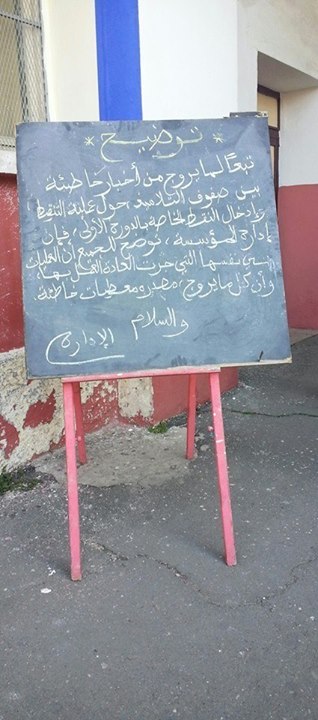 * توضيح *
تبعًا لما يروج من أخبار خاطئة
بين صفوف التلاميذ، حول عملية التنقيط
وإدخال النقط الخاصة بالدورة الأولى، فإن
إدارة المؤسسة، توضح للجميع أن العمليات
هي نفسها التي جرت العادة العمل بها،
وأن كل ما يروج، مصدره معطيات خاطئة.
والسلام
الإدارة